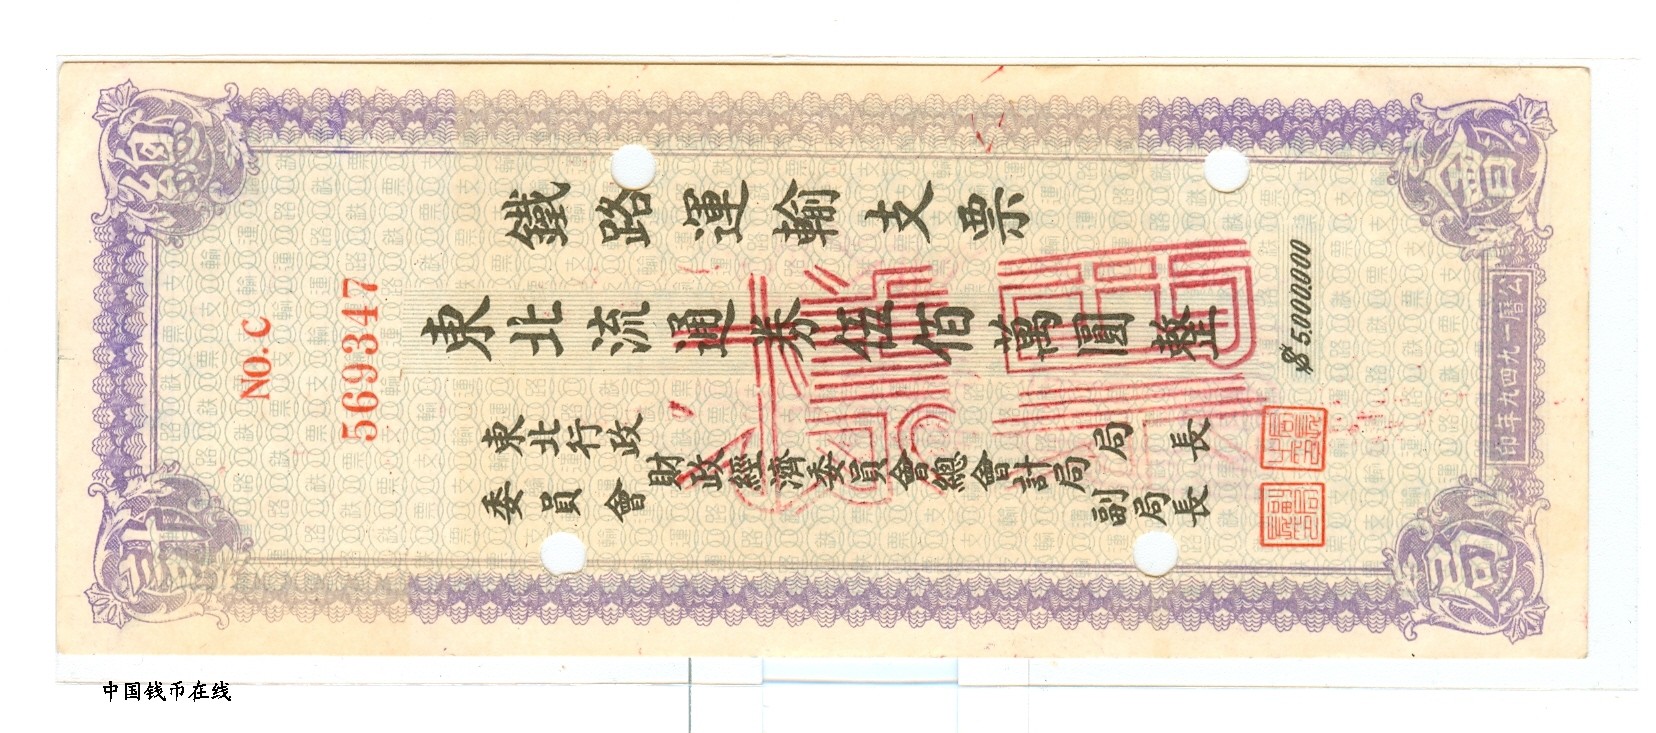 總
會
計
局
鐵路運輸支票
NO.C
5693347
東北流通券伍佰萬圓整
$5,000,000
東北行政
委員會
財政經濟委員會總會計局
局長
副局長
公曆一九四九年印
中国钱币在线